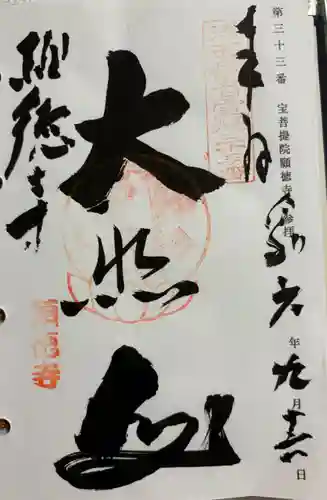 第三十三番 宝菩提院願徳寺 参拝
奉拝
令和六年九月十六日
大悲
願徳寺
願徳寺